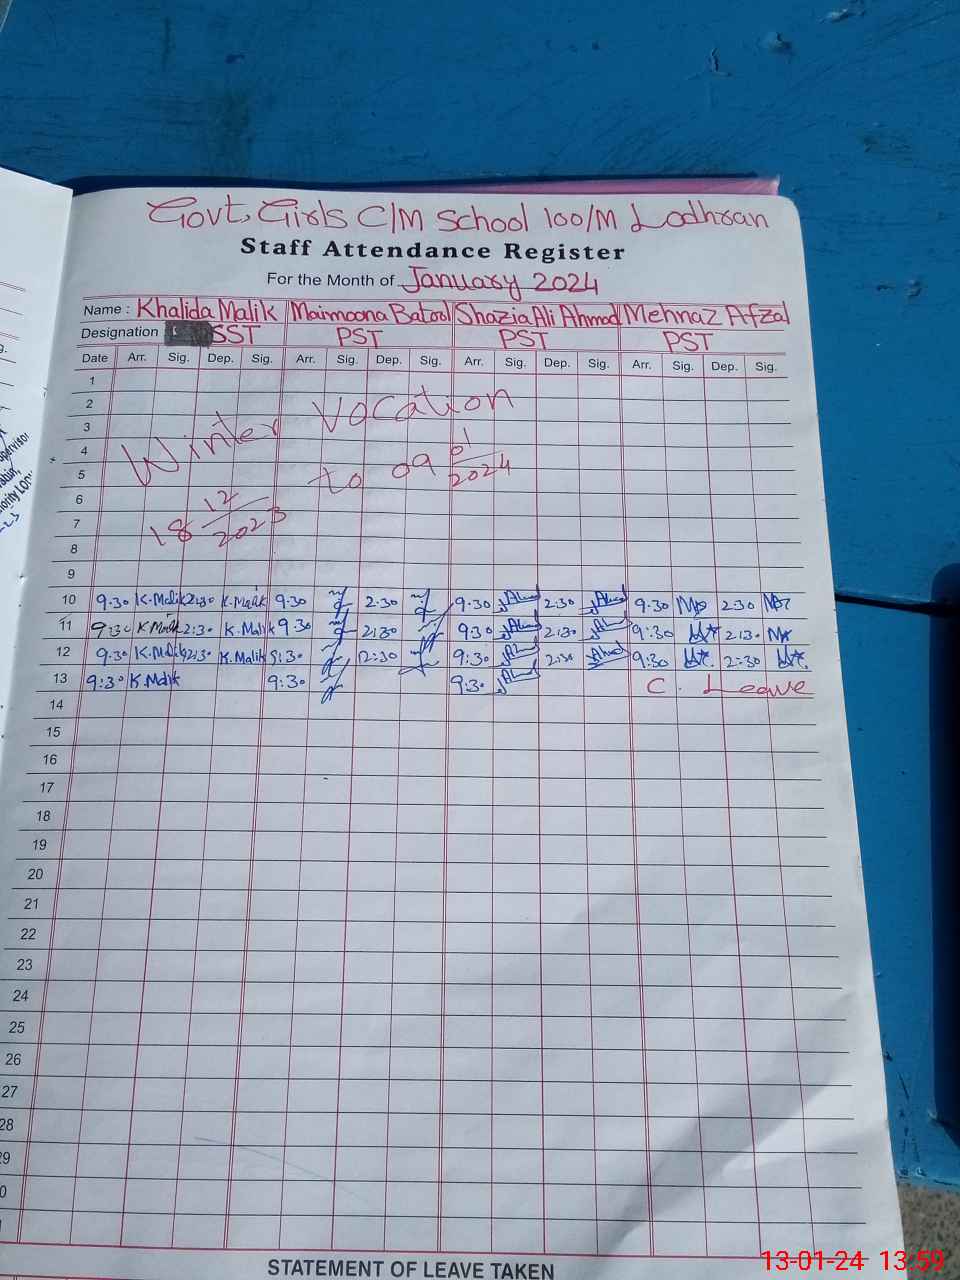 Govt. Girls C/M School 100/M Lodhran
Staff Attendance Register
For the Month of January 2024
Name : Khalida Malik Maimoona Batool Shazia Ali Ahmad Mehnaz Afzal
Designation SST PST PST PST
Date Arr. Sig. Dep. Sig. Arr. Sig. Dep. Sig. Arr. Sig. Dep. Sig. Arr. Sig. Dep. Sig.
1
2
3
4
5
6
7
8
9
Winter Vocation
18 12/2023 to 09 01/2024
10 9.30 K.Malik 2:30 K.Malik 9.30 2.30 9.30 Ahmad 2:30 Ahmad 9.30 2:30
11 9:30 K Malik 2:30 K.Malik 9.30 2:30 9:30 Ahmad 2:30 Ahmad 9:30 2:30
12 9:30 K.Malik 2:30 K.Malik 9:30 2:30 9:30 Ahmad 2:30 Ahmad 9:30 2:30
13 9:30 K.Malik 9:30 9:30 Ahmad C. Leave
14
15
16
17
18
19
20
21
22
23
24
25
26
27
28
29
STATEMENT OF LEAVE TAKEN
13-01-24 13:59